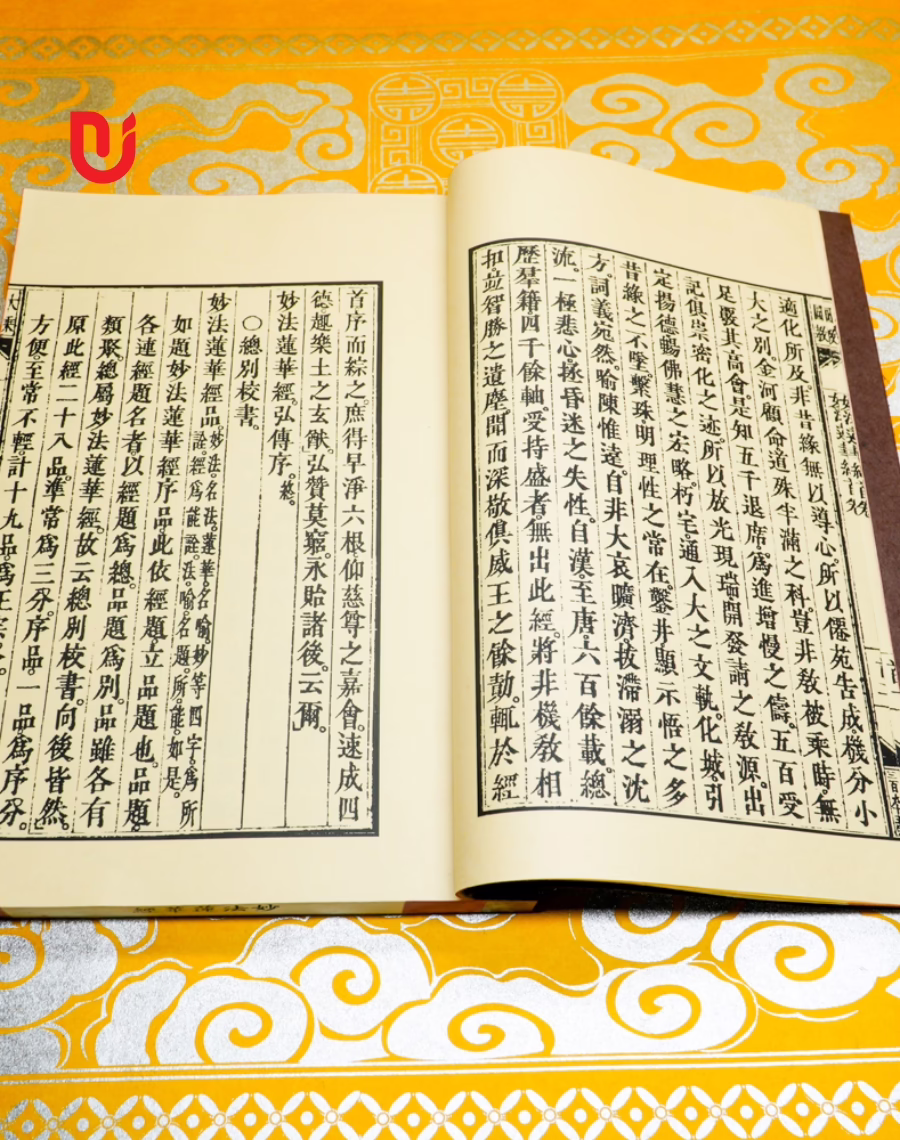 適化所及非昔緣無以導心。所以僊苑告成機分小
大之別。金河顧命道殊半滿之科。豈非教被乘時無
足覈其高會。是知五千退席。爲進增慢之儔。五百受
記俱崇密化之迹。所以放光現瑞。開發請之教源。出
定揚德暢佛慧之宏略。朽宅。通入大之文軌。化城。引
昔緣之不墜。繫珠明理性之常在。鑿井顯示悟之多
方。詞義宛然。喻陳惟遠。自非大哀曠濟。拔滯溺之沈
流。一極悲心拯昏迷之失性。自漢至唐。六百餘載。總
歷羣籍四千餘軸。受持盛者。無出此經。將非機教相
扣並智勝之遺塵。聞而深敬俱威王之餘勣。輒於經
首序而綜之。庶得早淨六根仰慈尊之嘉會。速成四
德趣樂土之玄猷。弘贊莫窮。永貽諸後。云爾。
妙法蓮華經。弘傳序。終。
○總別校書。
妙法蓮華經品。妙法名法。蓮華名喻。妙等四字。爲所
詮。經爲能詮。法。喻。名題。所。能。如是。
如題妙法蓮華經序品。此依經題。立品題也。品題。
各連經題名者以經題爲總。品題爲別。品雖各有
類聚。總屬妙法蓮華經。故云總別校書。向後皆然。
原此經二十八品。準常爲三分。序品。一品。爲序分。
方便。至常不輕。計十九品。爲正宗